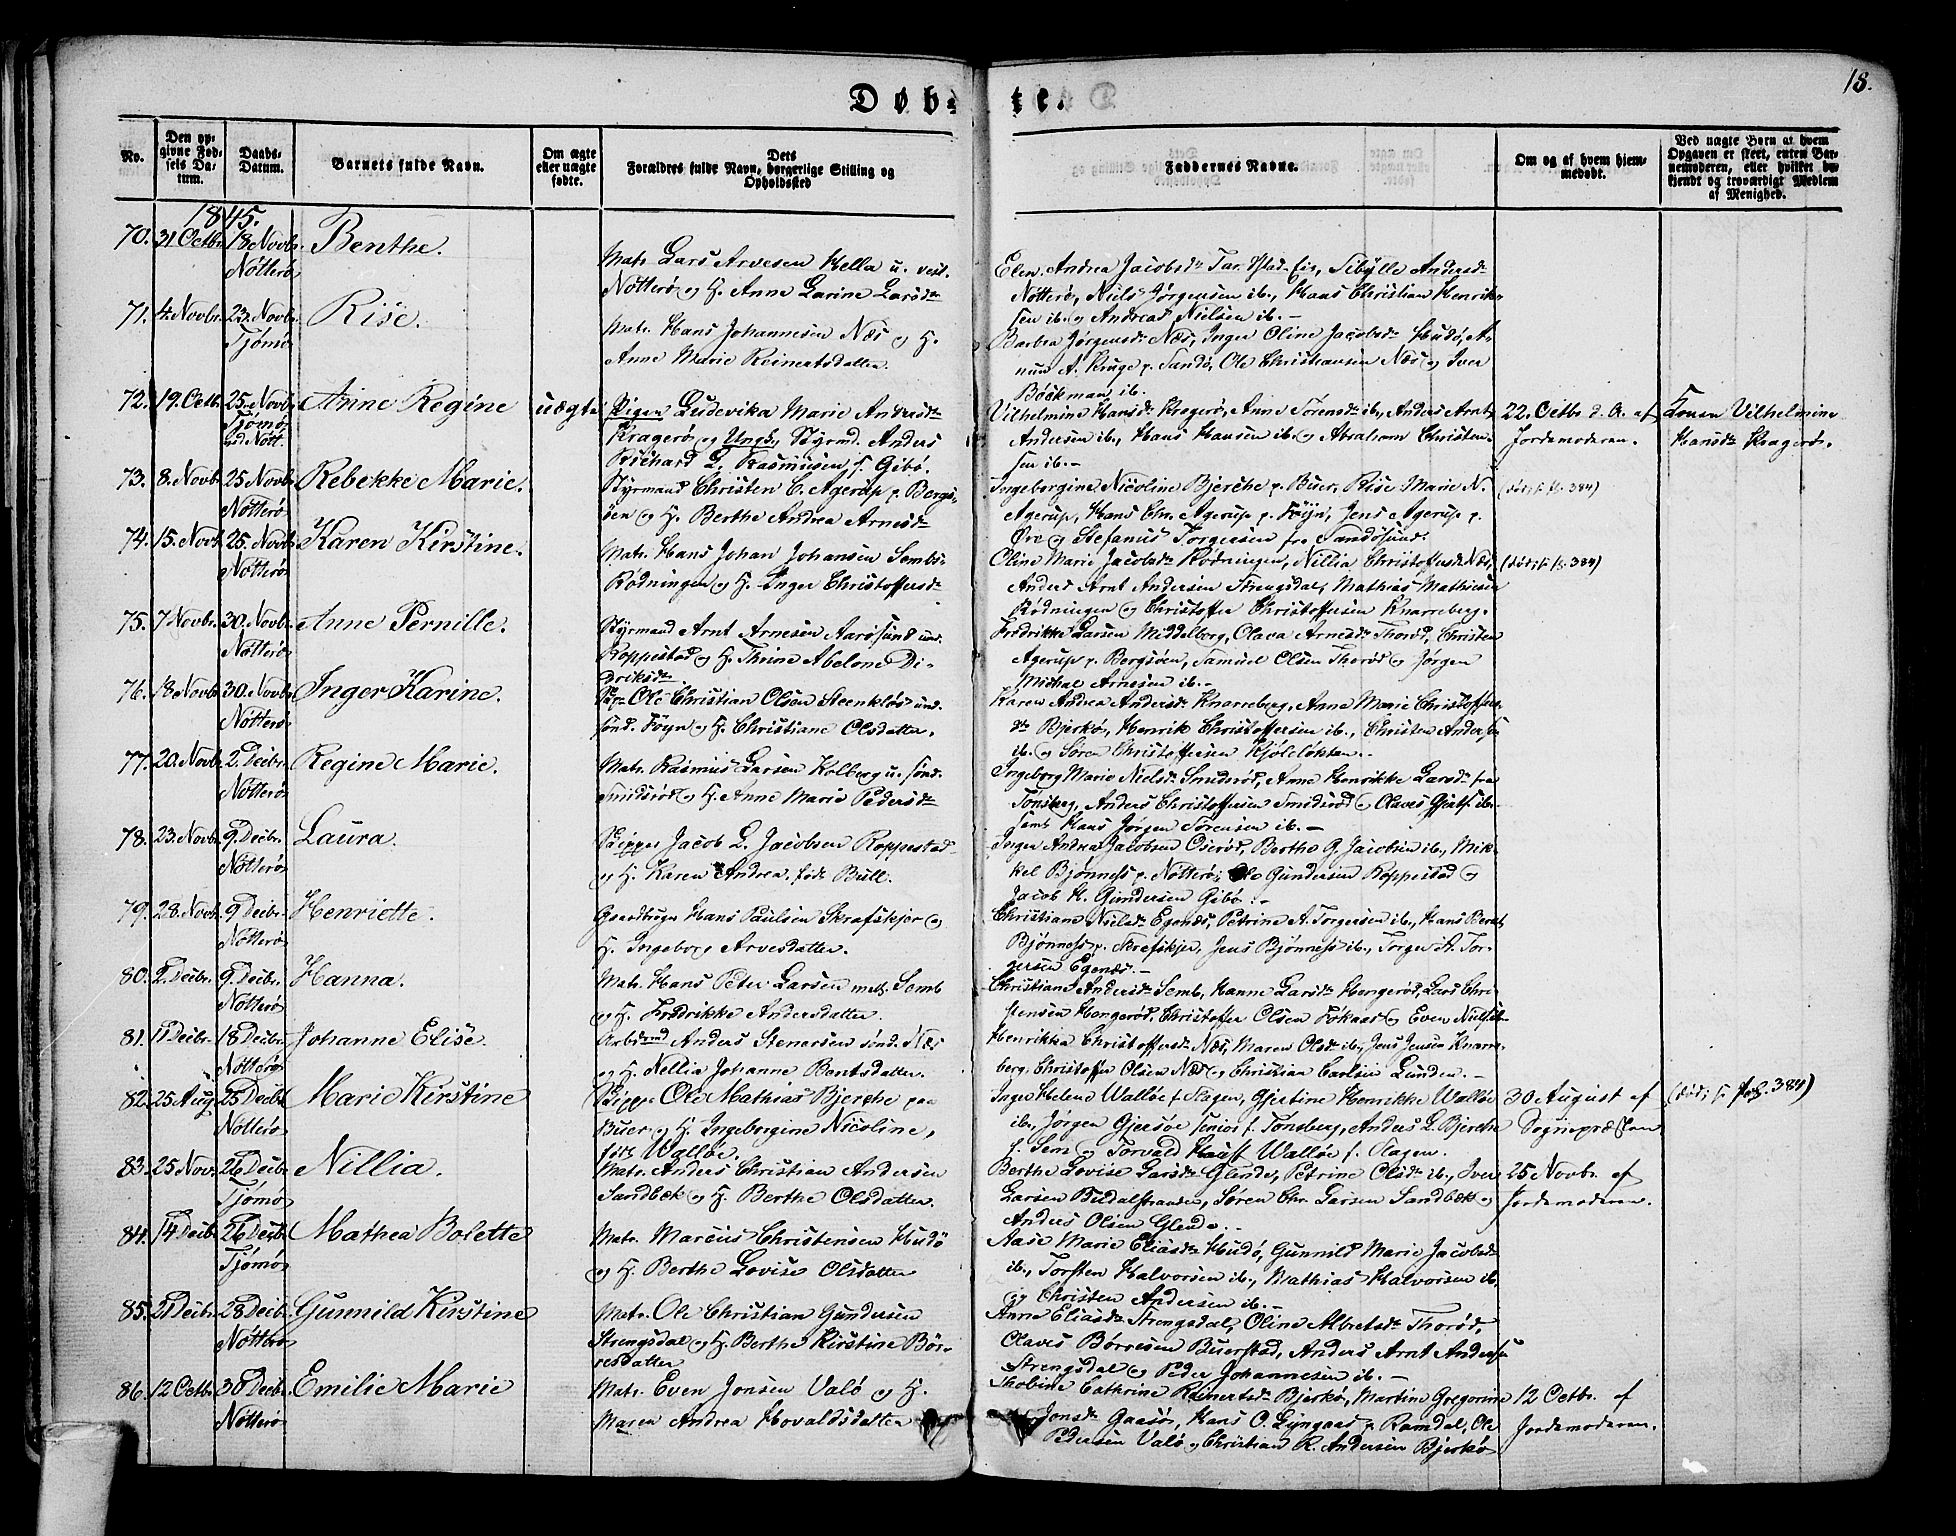 Døb- te.
18.
No.
Den op-
givne Fød-
sels Da-
tum.
Daabs-
Datum.
Barnets fulde Navn.
Om ægte
eller uægte
fødte.
Dets
Forældres fulde Navn, borgerlige Stilling og
Opholdssted
Faddernes Navne.
Om og af hvem hjem-
medøbt.
Ved uægte Børn at hvem
Opgaven er skeet, enten Bar-
nemoderen, eller hvilket be-
kjendt og troværdigt Medlem
af Menighed.
1845.
70. 31 Octbr. 18 Novbr. Nötterö Benthe.
Matr. Lars Arvesen Hella u. vest.
Nötterö og H. Anne Larine Larsdr
Elen Andrea Jacobsdr Sibylle Andersdr
Nötterö, Niels Jörgensen ib., Hans Christian Henrik-
sen ib. og Andreas Nielsen ib. –
71. 4. Novbr. 23. Novbr. Tjömö Rise.
Matr. Hans Johannesen Næs og H.
Anne Marie Reinertsdatter.
Barbra Jörgensdr Næs, Inger Oline Jacobsdr Hudö, A-
mun A. Kruge p. Sandö, Ole Christiansen Næs og Iver
Böckman ib.
72. 19. Octb. 25. Novb. Tjömö, ind. Nött. Anne Regine uægte
Pigen Ludevika Marie Andersdr
Kragerö og Ungk. Styrmd. Anders
Richard L. Rasmusen f. Gibö.
Vilhelmine Hansdr Kragerö, Anne Sörensdr ib., Anders Arnt
Andersen ib., Hans Hansen ib. og Abraham Christen-
sen ib. –
22. Octbr d. A. af
Jordemoderen.
Konen Vilhelmine
Hansdr Kragerö.
73. 8. Novbr. 25 Novb. Nötterö Rebekke Marie.
Styrmand Christen C. Agerup p. Bergs-
öen og H. Berthe Andrea Arnesdr
Ingeborgine Nicoline Bjerche p. Buer, Rise Marie N.
Agerup, Hans Chr. Agerup p. Föyn, Jens Agerup p.
Öre og Stefanus Torgersen fra Sandösund.
(död; f. fol. 384)
74. 15. Novb. 25. Novb. Nötterö Karen Kirstine.
Matr. Hans Johan Johansen Sembs-
Rödningen og H. Inger Christoffersdr
Oline Marie Jacobsdr Rödningen, Nillia Christoffersdr Næs,
Anders Arnt Andersen Strengsdal, Mathias Mathiesen
Rödningen og Christoffer Christoffersen Knarreberg.
(död; f. fol. 384)
75. 7 Novbr. 30. Novb. Nötterö Anne Pernille.
Styrmand Arnt Arnesen Aarösund und.
Roppestad og H. Thrine Abelone Di-
driksdr.
Fredrikke Larsen Middelborg, Oleva Arnesdr Thoröd, Christen
Agerup p. Bergsöen, Samuel Olsen Thoröd og Jörgen
Michal Arnesen ib. –
76. 18. Novb. 30. Novb. Nötterö Inger Karine.
Ole Christian Olsen Steenklös und.
sönd. Föyn og H. Christiane Olsdatter.
Karen Andrea Andersdr Knarreberg, Anne Marie Christoffers-
dr Bjerkö, Henrik Christoffersen ib., Christen Andersen
ib. og Sören Christoffersen Kjölelökken. –
77. 20. Novb. 2. Decbr. Nötterö Regine Marie.
Matr. Rasmus Larsen Kolberg u. sönd.
Smidsröd og H. Anne Marie Pedersdr
Ingeborg Marie Nielsdr Smidsröd, Anne Henrikke Larsdr fra
Tönsberg, Anders Christoffersen Smidsröd og Olaves Gjertsen ib.
samt Hans Jörgen Sörensen ib. –
78. 23. Novb. 9. Decbr. Nötterö Laura.
Skipper Jacob L. Jacobsen Roppestad
og H. Karen Andrea, föd Bull.
Inger Andrea Jacobsen Oseröd, Berthe G. Jacobsen ib., Mik-
kel Bjönness p. Nötterö, Ole Gundersen Roppestad og
Jacob H. Gundersen Gibö. –
79. 28. Novb. 9 Decbr. Nötterö Henriette.
Gaardbruger Hans Paulsen Skrafskjer og
H. Ingeborg Arvesdatter.
Christiane Nielsdr Egenæs, Petrine A. Torgersen ib., Hans Bernt
Bjönness p. Skrafskjer, Jens Bjönness ib., Torger A. Tor-
gersen Egenæs. –
80. 2. Decbr. 9. Decbr. Nötterö Hanna.
Matr. Hans Peter Larsen mell. Semb
og H. Fredrikke Andersdatter.
Christiane Andersdr Semb, Hanne Larsdr Hengeröd, Lars Chri-
stensen Hengeröd, Christoffer Olsen Fökaas og Even Nielsen ib.
81. 11 Decbr. 18 Decbr. Nötterö Johanne Elise.
Arbsmd Anders Stenersen sönd. Næs
og H. Nellia Johanne Berntsdatter.
Henrikka Christoffersdr Næs, Maren Olsdr ib., Jens Jensen Knarre-
berg, Christoffer Olsen Næs og Christian Carlsen Lunden. –
82. 25 Aug. 25 Decbr Nötterö Marie Kirstine
Skipper Ole Mathias Bjerche paa
Buer og H. Ingeborgine Nicoline,
föd Wallöe.
Inger Helene Wallöe f. Slagen, Gjertine Henrikke Wallöe
ib., Jörgen Gjersöe senior f. Tönsberg, Anders L. Bjerche
f. Sem og Torvald Hauff Wallöe f. Slagen.
30 August af
Sognepræsten.
(död; f. fol. 384)
83. 25 Nov. 26 Decbr. Tjömö Nillia.
Matr. Anders Christian Andersen
Sandbæk og H. Berthe Olsdatter.
Berthe Lovise Larsdr Glende, Petrine Olsdr ib., Iver
Larsen Budalstranden, Sören Chr. Larsen Sandbæk og
Anders Olsen Glende. –
25 Novbr. af
Jordemoderen.
84. 14 Decbr. 26 Decbr. Tjömö Mathea Bolette
Matr. Marcus Christensen Hudö
og H. Berthe Lovise Olsdatter
Aase Marie Eliasdr Hudö, Gunnild Marie Jacobsdr
ib., Torsten Halvorsen ib., Mathias Halvorsen ib.
og Christen Andersen ib. –
85. 21 Decbr. 28 Decbr. Nötterö Gunnild Kirstine
Matr. Ole Christian Gundersen
Strengsdal og H. Berthe Kirstine Bör-
resdatter
Anne Eliasdr Strengsdal, Oline Albretsdr Thoröd,
Olaves Börresen Buerstad, Anders Arnt Andersen
Strengsdal og Peder Johannesen ib. –
86. 12 Octbr. 30 Decbr. Nötterö Emilie Marie
Matr. Even Jensen Valö og H.
Maren Andrea Hovaldsdatter
Thobine Cathrine Reinertsdr Bjerkö, Martine Gregorine
Jensdr Gaasö, Hans O. Lyngaas p. Ramdal, Ole
Pedersen Valö og Christian R. Andersen Bjerkö
12 Octbr. af
Jordemoderen.